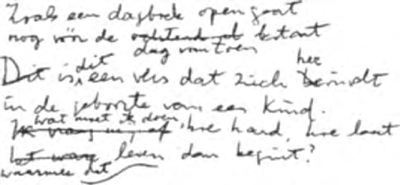 Zoals een dagboek open gaat
nog vóór de ochtend al bestaat
dag van toen
Dit is, dit een vers dat zich bevindt
in de geboorte van een kind.
wat moet ik doen,
Ik vraag mij af hoe hard, hoe laat
leven dan begint?
waarmee dit